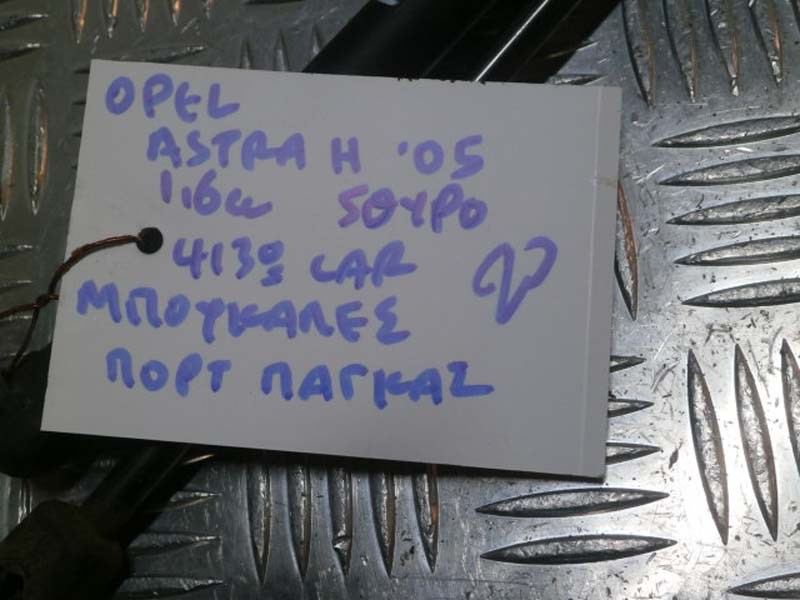 OPEL
ASTRA H '05
1.6cc 5ΘΥΡΟ
413º CAR
ΜΠΟΥΚΑΛΕΣ
ΠΟΡΤ ΠΑΓΚΑΖ